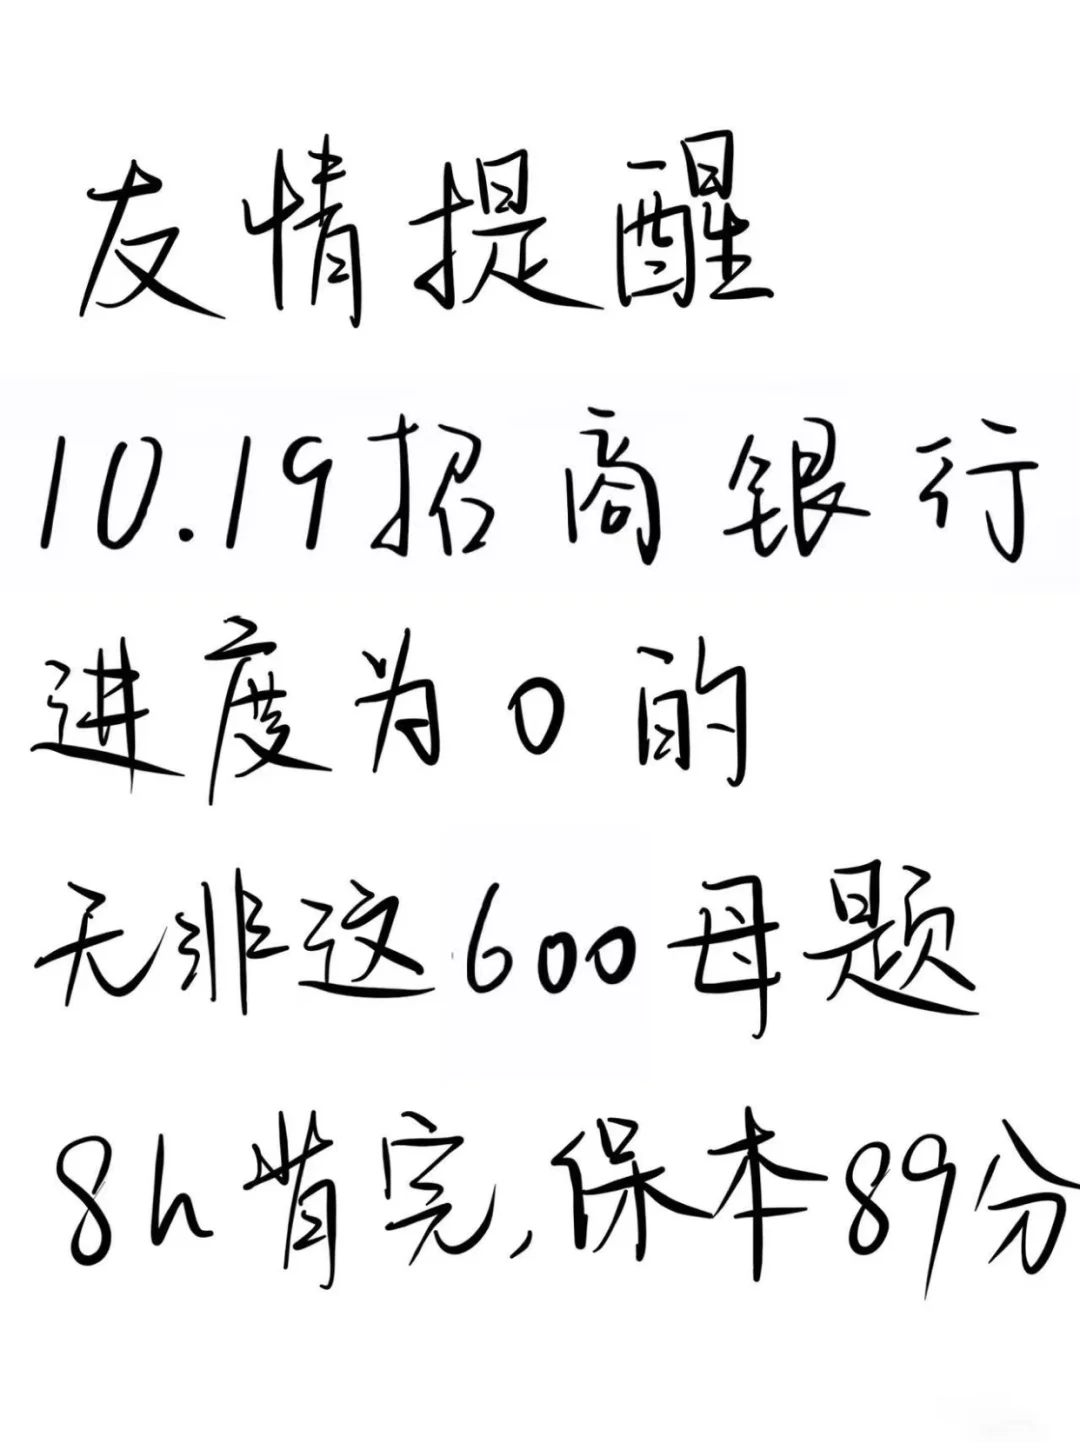 友情提醒
10.19招商银行
进度为0的
无非这600母题
8h背完,保本89分